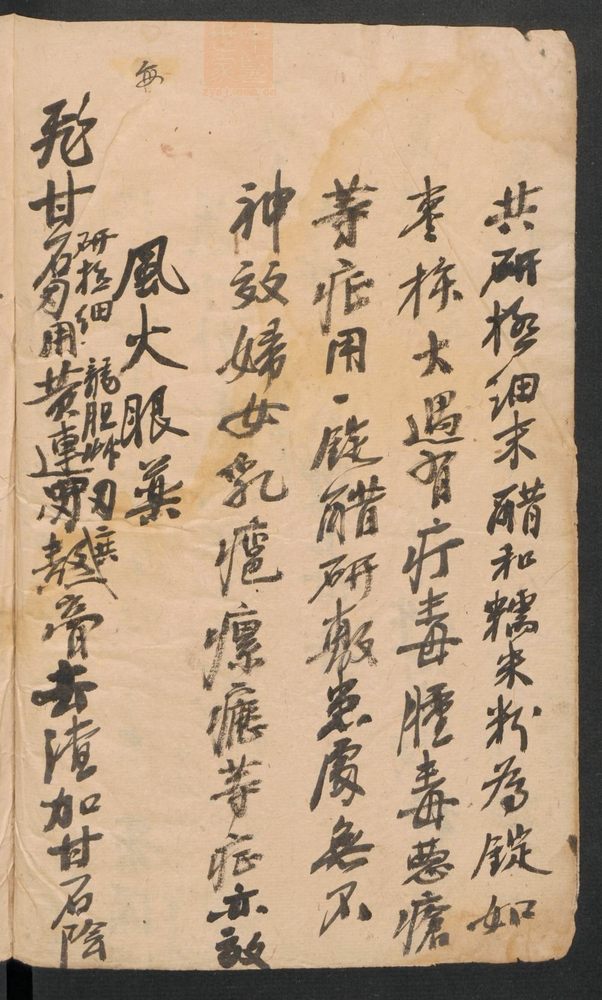 共研極細末醋和糯米粉為錠如
枣核大遇有疔毒腫毒惡瘡
等症用一錠醋研敷患處無不
神效婦女乳瘡瘰癧等症亦效
每
風火眼藥
飛甘石
研极細
用黄連
龍胆艸
熬膏去渣加甘石陰